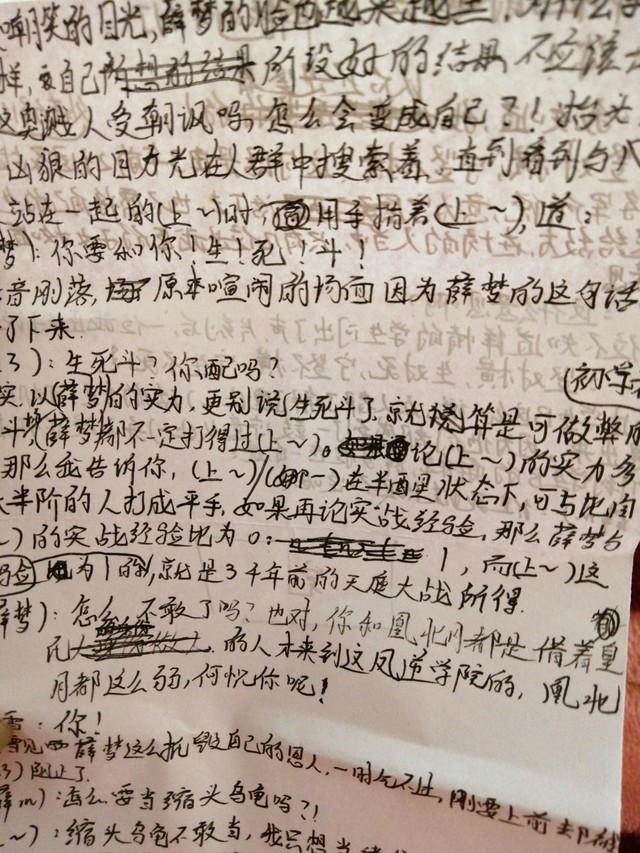 嘲笑的目光,薛梦的脸色越来越黑.为什么
样,要自己所设好的结果不应该
人受朝讽吗,怎么会变成自己?!抬头
凶狠的目光在人群中搜索着,直到看到与八
站在一起的(上~)时,用手指着(上~),道:
梦):你要和你!生!死!斗!
音刚落,原本喧闹的场面因为薛梦的这句话
了下来.
3):生死斗?你配吗?
实,以薛梦的实力,更别说生死斗了,就算是可做弊的
斗,薛梦都不一定打得过(上~)。论(上~)的实力多
那么我告诉你,(上~)/(那一)在半醒状态下,可与比自
大半阶的人打成平手,如果再论实战经验,那么薛梦与
~)的实战经验比为0:1,而(上~)这
验为1的,就是3千年前的天庭大战所得.
薛梦):怎么不敢了吗?也对,你和凰北月都是借着皇
的人才来到这凤逆学院的,凰北
月都这么弱,何忧你呢!
雪:你!
雪见薛梦这么抵毁自己的恩人,一时气不过,刚要上前去却被
3)阻止了.
薛m):怎么要当缩头乌龟吗?!
~):缩头乌龟不敢当,我只想当